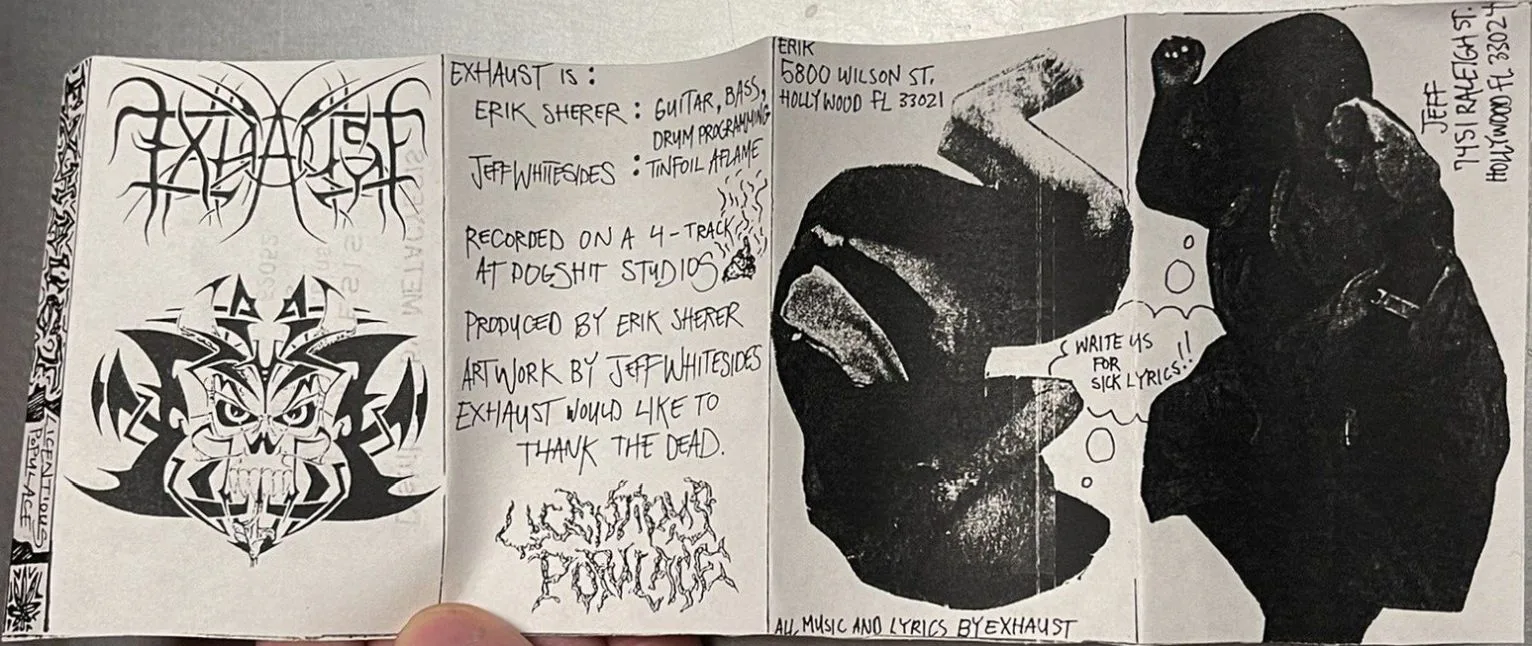 EXHAUST
LICENTIOUS
POPULACE
EXHAUST
EXHAUST IS :
ERIK SHERER : GUITAR, BASS,
DRUM PROGRAMMING
JEFF WHITESIDES : TINFOIL AFLAME
RECORDED ON A 4-TRACK
AT DOGSHIT STUDIOS
PRODUCED BY ERIK SHERER
ARTWORK BY JEFF WHITESIDES
EXHAUST WOULD LIKE TO
THANK THE DEAD.
LICENTIOUS
POPULACE
ERIK
5800 WILSON ST.
HOLLYWOOD FL 33021
WRITE US
FOR
SICK LYRICS!!
ALL MUSIC AND LYRICS BY EXHAUST
JEFF
7451 RALEIGH ST.
HOLLYWOOD FL 33024